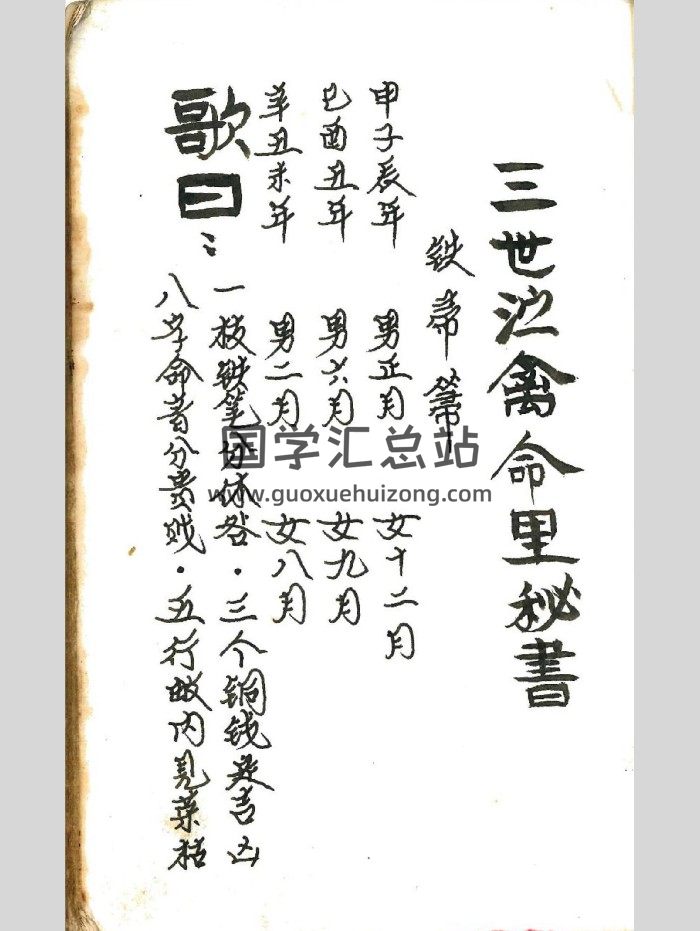 三世江禽命里秘書
铁帚篇
甲子辰年 男正月 女十二月
巳酉丑年 男六月 女九月
辛丑未年 男二月 女八月
歌曰：
一枝铁笔分休咎·三个铜钱定吉凶
八字命著分贵贱·五行 内见荣枯
国学汇总站
www.guoxuehuizong.com